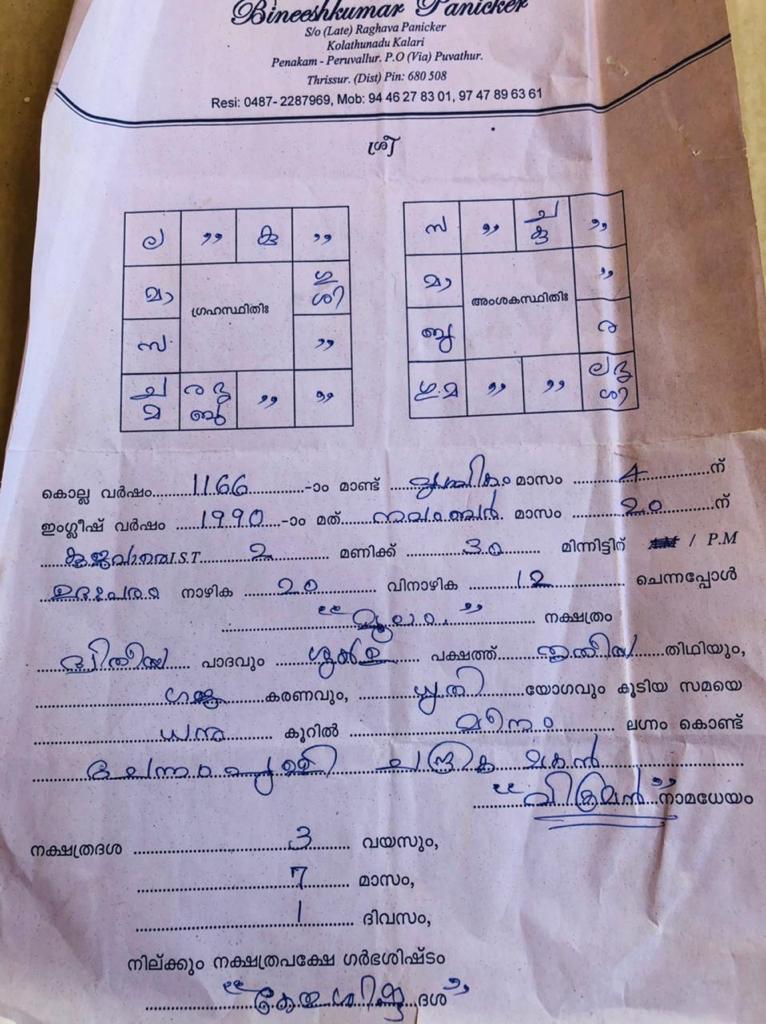 Bineeshkumar Panicker
S/o (Late) Raghava Panicker
Kolathunadu Kalari
Penakam - Peruvallur. P.O (Via) Puvathur.
Thrissur. (Dist) Pin: 680 508
Resi: 0487- 2287969, Mob: 94 46 27 83 01, 97 47 89 63 61
ശ്രീ
ല ,, കു ,,
മാ ഗ്രഹസ്ഥിതിഃ ഗു ശി
സ ,,
ച മ ര ബു ,, ,,
സ ,, ച കു ,,
മാ അംശകസ്ഥിതിഃ ,,
ബു ര
ഗു മ ,, ,, ല ശി
കൊല്ല വർഷം 1166 -ാം മാണ്ട് വൃശ്ചികം മാസം 4 ന്
ഇംഗ്ലീഷ് വർഷം 1990 -ാം മത് നവംബർ മാസം 20 ന്
I.S.T 2 മണിക്ക് 30 മിന്നിട്ടിന് / P.M
നാഴിക 20 വിനാഴിക 12 ചെന്നപ്പോൾ
"മൂലം" നക്ഷത്രം
ദ്വിതീയ പാദവും ശുക്ല പക്ഷത്ത് തൃതീയ തിഥിയും,
ഗജ കരണവും, ധൃതി യോഗവും കൂടിയ സമയെ
ധനു കൂറിൽ മീനം ലഗ്നം കൊണ്ട്
ചന്ദ്രിക മകൻ
"വിക്രമൻ" നാമധേയം
നക്ഷത്രദശ 3 വയസും,
7 മാസം,
1 ദിവസം,
നില്ക്കും നക്ഷത്രപക്ഷേ ഗർഭശിഷ്ടം
ദശ"